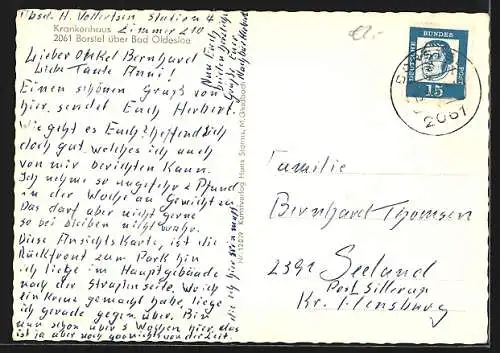 Absd. H. Vollertsen Station 4
Zimmer 210
Krankenhaus
2061 Borstel über Bad Oldesloe
Lieber Onkel Bernhard
Liebe Tante Anni!
Einen schönen Gruß von
hier sendet Euch Herbert.
Wie geht es Euch? hoffendlich
doch gut welches ich auch
von mir berichten kann.
Ich nehme so ungefähr 2 Pfund
in der Woche an Gewicht zu
Das darf aber nicht gerne
so bei bleiben nicht wahr.
Diese Ansichts Karte, ist die
Rückfront zum Park hin
ich liege im Hauptgebäude
nach der Straßenseite. Wo ich
ein Kreuz gemacht habe, liege
ich gerade gegen über. Bis
nun schon über 5 Wochen hier, das
ist ja aber noch gar nicht von der Zeit.
die ich hier sein muß
Nun Euch
beiden herzliche
Grüße Euer
Nr. 12039 Kunstverlag Hans Storms, M.Gladbach
DEUTSCHE BUNDESPOST
15
2061
Familie
Bernhard Thomsen
2391 Seeland
Post Sillerup
Kr. Flensburg